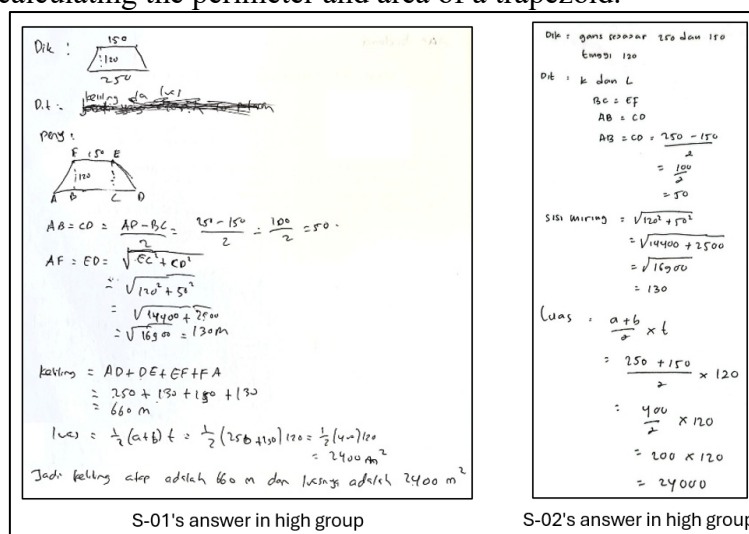 calculating the perimeter and area of a trapezoid.
Dik :
150
120
250
Dit = keliling da luas
peny :
F 150 E
120
A B C D
AB = CD = AD - BC / 2 = 250 - 150 / 2 = 100 / 2 = 50.
AF = ED = √EC² + CD²
= √120² + 50²
= √14400 + 2500
= √16900 = 130 m
keliling = AD + DE + EF + FA
= 250 + 130 + 150 + 130
= 660 m
luas = 1/2 (a+b) t = 1/2 (250 + 150) 120 = 1/2 (400) 120
= 2400 m²
Jadi keliling atap adalah 660 m dan luasnya adalah 2400 m²
S-01's answer in high group
Dik : garis sejajar 250 dan 150
tinggi 120
Dit : k dan L
BC = EF
AB = CD
AB = CD = 250 - 150 / 2
= 100 / 2
= 50
sisi miring = √120² + 50²
= √14400 + 2500
= √16900
= 130
Luas = a + b / 2 × t
= 250 + 150 / 2 × 120
= 400 / 2 × 120
= 200 × 120
= 24000
S-02's answer in high group